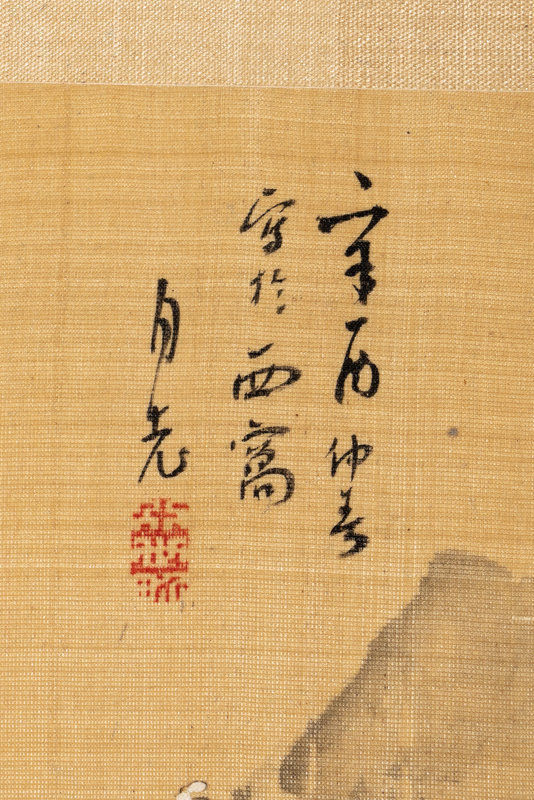 辛酉仲春
寫於西窗
月先